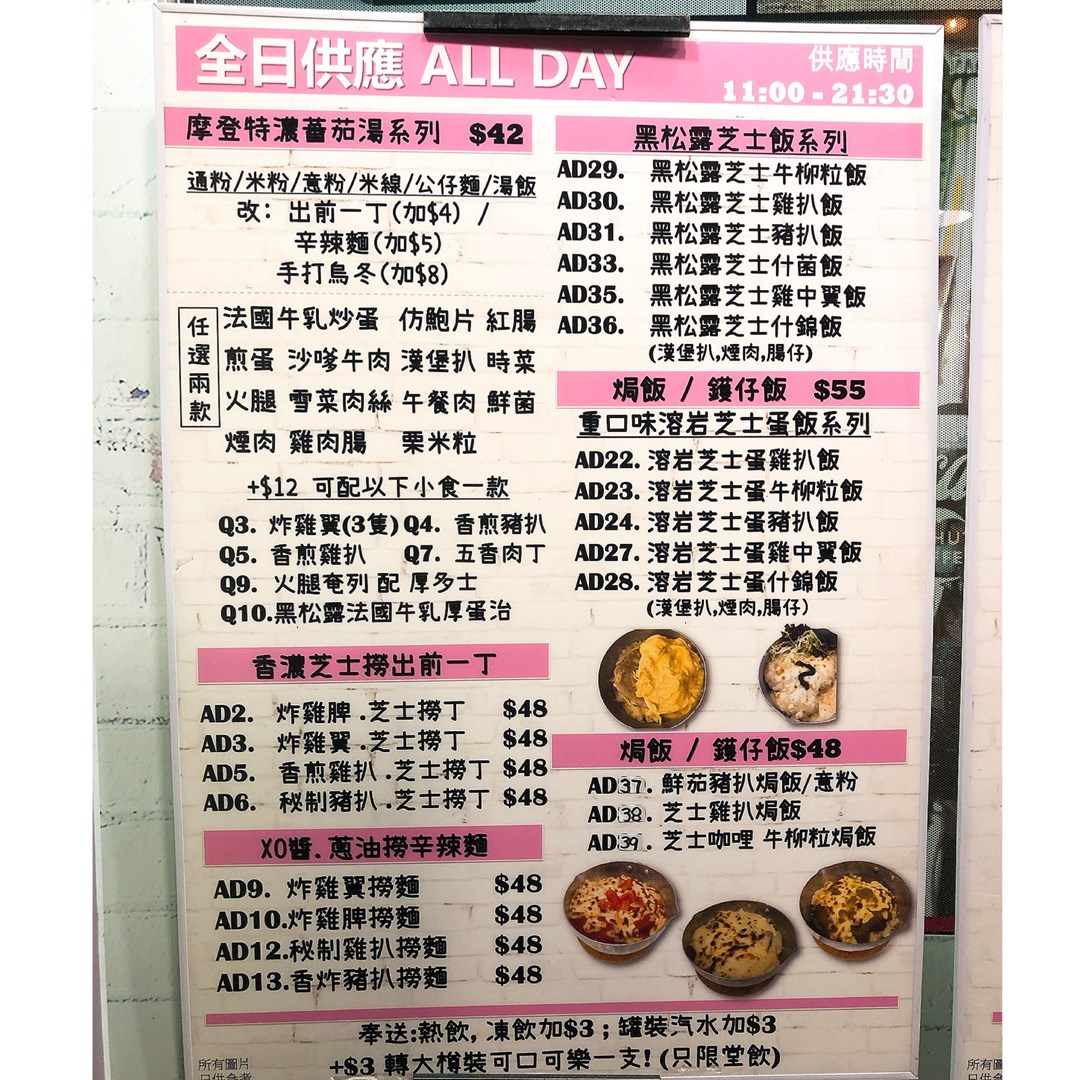 全日供應 ALL DAY
供應時間
11:00 - 21:30
摩登特濃蕃茄湯系列 $42
通粉/米粉/意粉/米線/公仔麵/湯飯
改: 出前一丁(加$4) /
辛辣麵(加$5)
手打烏冬(加$8)
任選兩款
法國牛乳炒蛋 仿鮑片 紅腸
煎蛋 沙嗲牛肉 漢堡扒 時菜
火腿 雪菜肉絲 午餐肉 鮮菌
煙肉 雞肉腸 粟米粒
+$12 可配以下小食一款
Q3. 炸雞翼(3隻) Q4. 香煎豬扒
Q5. 香煎雞扒 Q7. 五香肉丁
Q9. 火腿奄列 配 厚多士
Q10.黑松露法國牛乳厚蛋治
香濃芝士撈出前一丁
AD2. 炸雞脾.芝士撈丁 $48
AD3. 炸雞翼.芝士撈丁 $48
AD5. 香煎雞扒.芝士撈丁 $48
AD6. 秘制豬扒.芝士撈丁 $48
XO醬.蔥油撈辛辣麵
AD9. 炸雞翼撈麵 $48
AD10.炸雞脾撈麵 $48
AD12.秘制雞扒撈麵 $48
AD13.香炸豬扒撈麵 $48
黑松露芝士飯系列
AD29. 黑松露芝士牛柳粒飯
AD30. 黑松露芝士雞扒飯
AD31. 黑松露芝士豬扒飯
AD33. 黑松露芝士什菌飯
AD35. 黑松露芝士雞中翼飯
AD36. 黑松露芝士什錦飯
(漢堡扒,煙肉,腸仔)
焗飯 / 鑊仔飯 $55
重口味溶岩芝士蛋飯系列
AD22. 溶岩芝士蛋雞扒飯
AD23. 溶岩芝士蛋牛柳粒飯
AD24. 溶岩芝士蛋豬扒飯
AD27. 溶岩芝士蛋雞中翼飯
AD28. 溶岩芝士蛋什錦飯
(漢堡扒,煙肉,腸仔)
焗飯 / 鑊仔飯$48
AD37. 鮮茄豬扒焗飯/意粉
AD38. 芝士雞扒焗飯
AD39. 芝士咖哩 牛柳粒焗飯
奉送:熱飲, 凍飲加$3 ; 罐裝汽水加$3
+$3 轉大樽裝可口可樂一支! (只限堂飲)
所有圖片
只供參考
所有圖